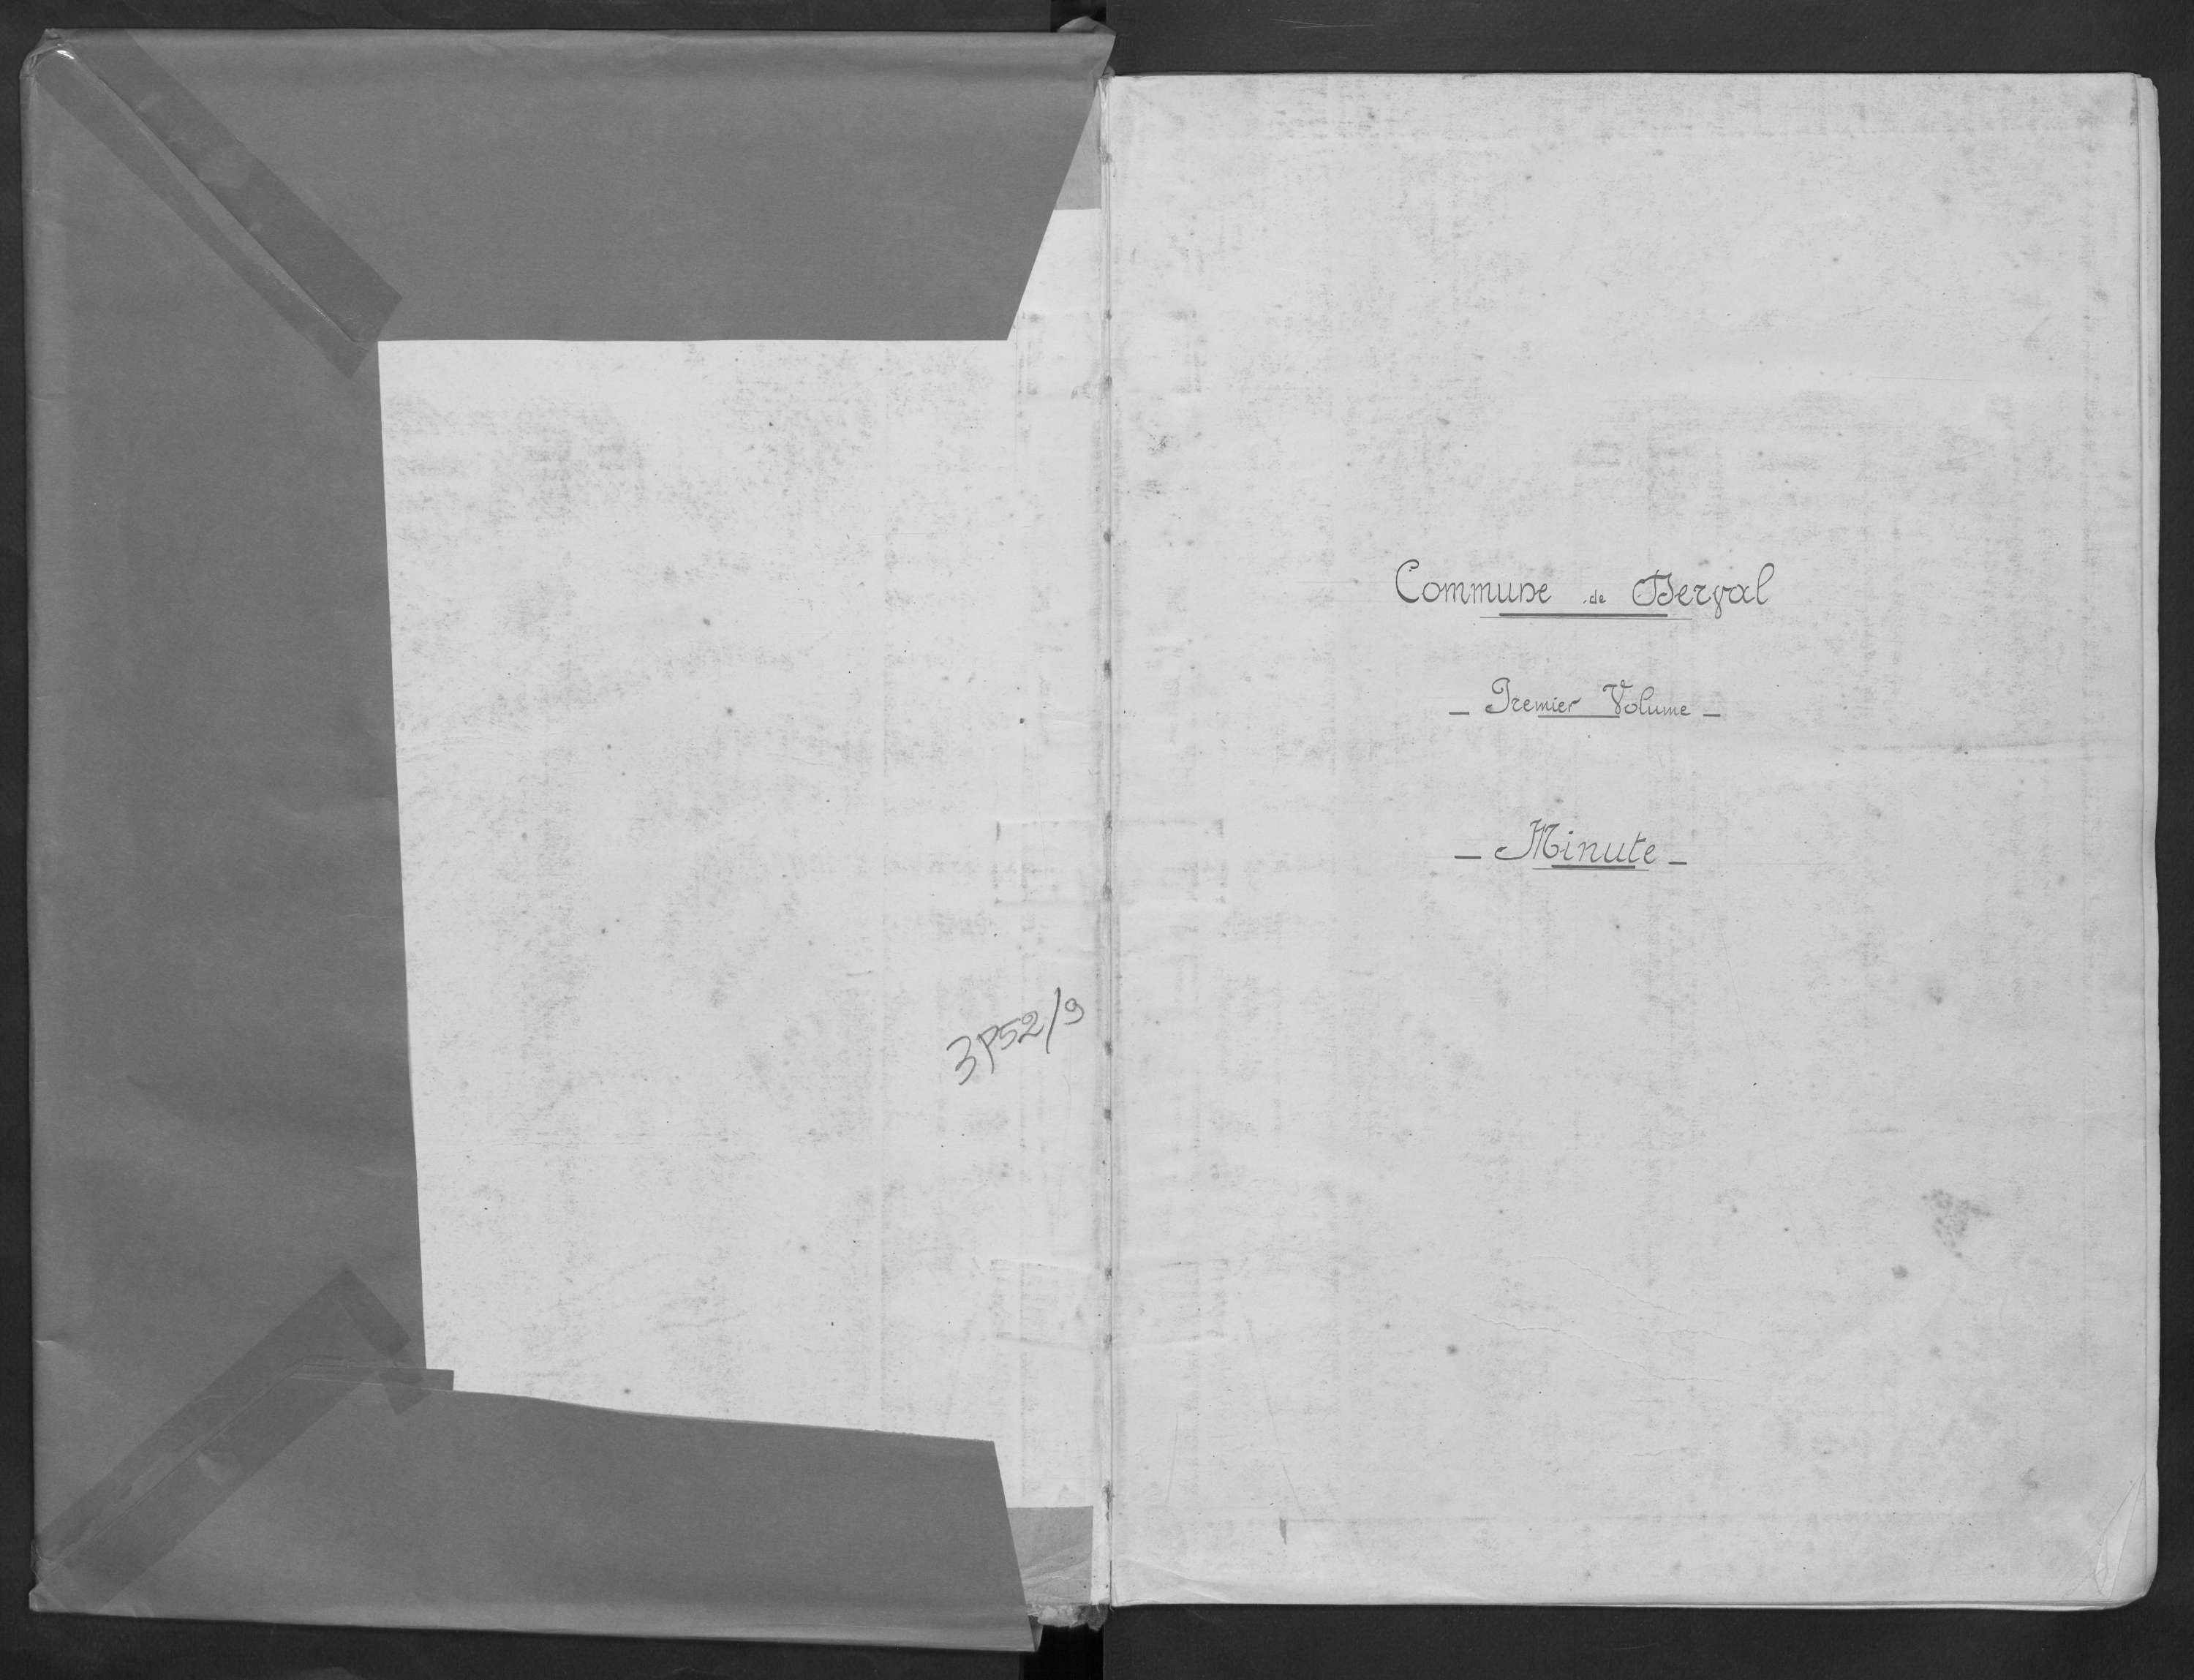 3P52/9
Commune de Derval
- Premier Volume -
- Minute -